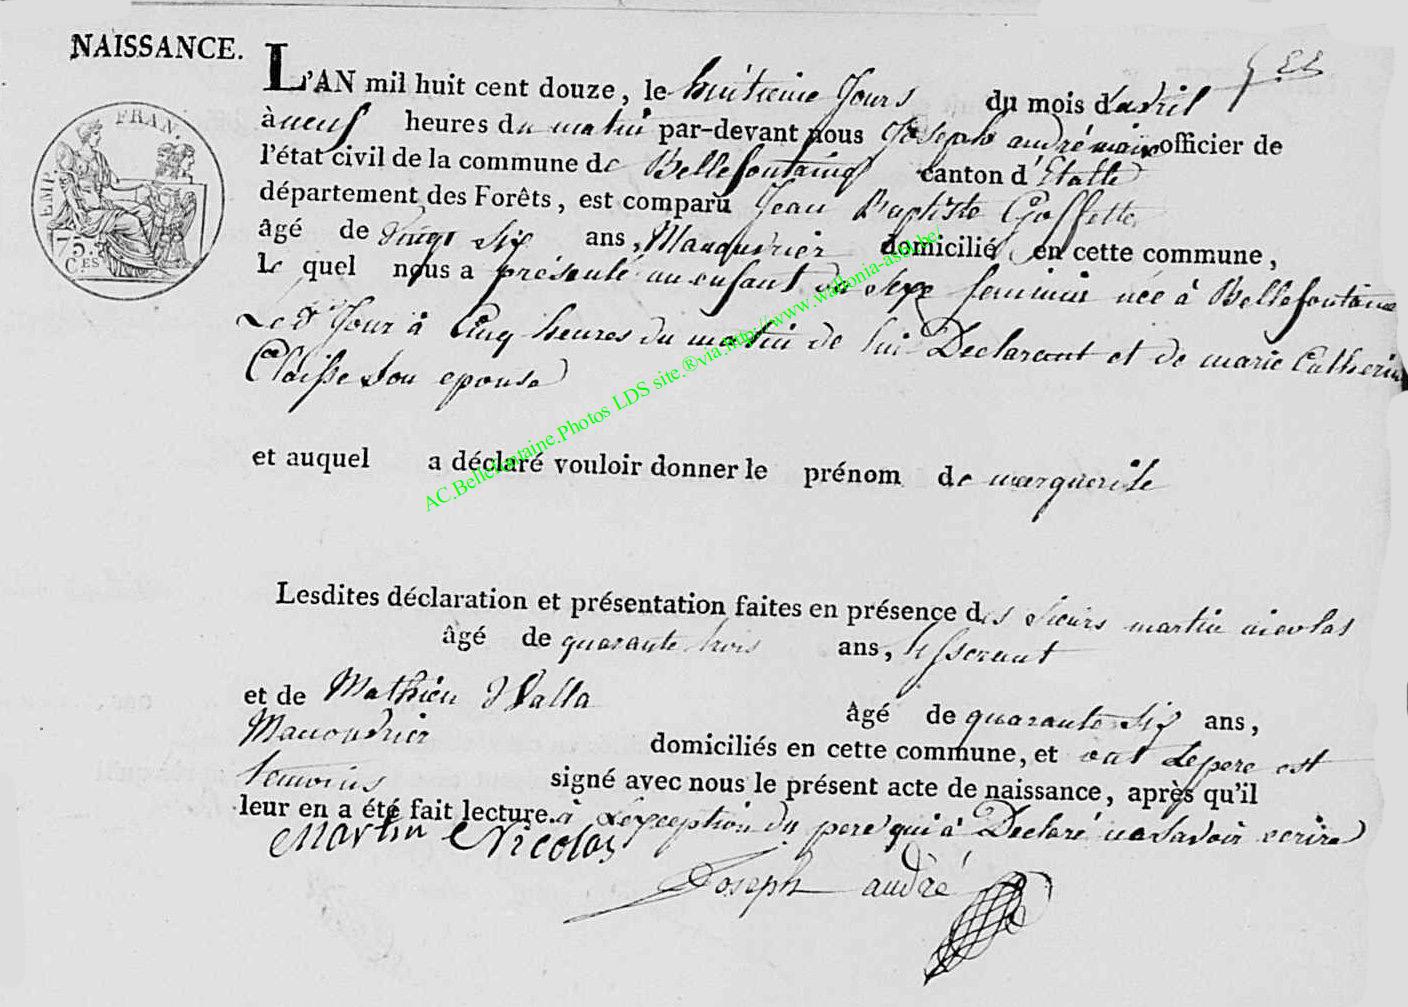 NAISSANCE.
L'AN mil huit cent douze, le huitieme Jours du mois d'avril
à neuf heures du matin par-devant nous Joseph andré maire officier de
l'état civil de la commune de Bellefontaine canton d'Etalle
département des Forêts, est comparu Jean Baptiste Goffette
âgé de vingt Six ans, Manouvrier domicilié en cette commune,
Le quel nous a présenté un enfant du Sexe feminin née à Bellefontaine
Le dt Jour à Cinq heures du matin de lui Declarant et de marie Catherine
Claisse Son epouse
et auquel a déclaré vouloir donner le prénom de marguerite
Lesdites déclaration et présentation faites en présence des Sieurs martin nicolas
âgé de quarante trois ans, tisserant
et de Mathieu Walla âgé de quarante Six ans,
Manouvrier domiciliés en cette commune, et ont Le pere est
temoins signé avec nous le présent acte de naissance, après qu'il
leur en a été fait lecture. à Lexception du pere qui à Declaré ne Savoir ecrire
Martin Nicolas
Joseph andré
EMP. FRAN.
75.
CES
AC.Bellefontaine.Photos LDS site.®via.http://www.wallonia-asbl.be/